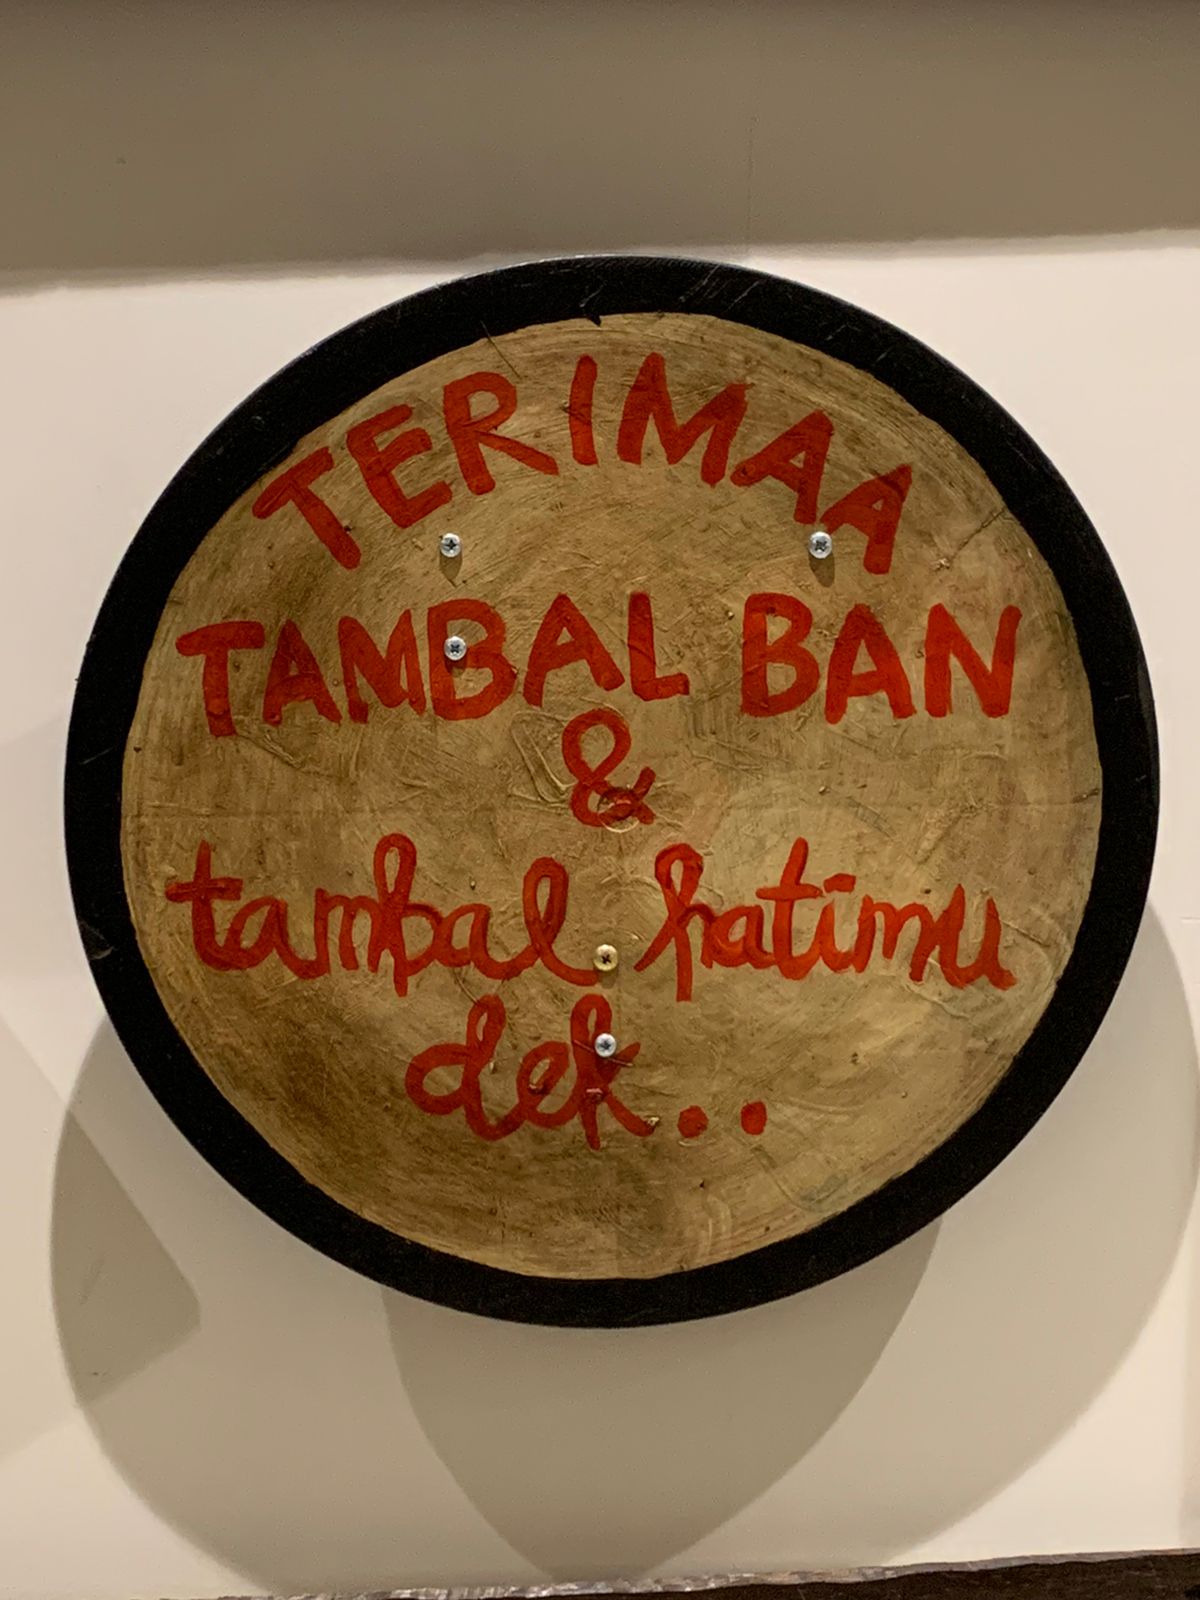 TERIMAA
TAMBAL BAN
&
tambal hatimu
dek..